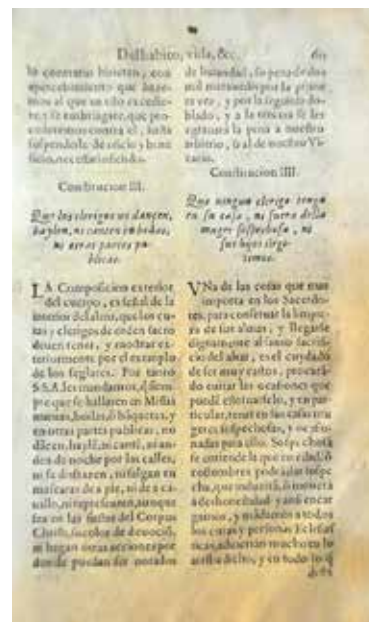 Del habito, vida, &c.
lo contrario hizieren, con
apercebimiento que hare-
mos al que en ello excedie-
re, y se embriagare, que pro-
cederemos contra el, hasta
suspenderle de oficio y bene
ficio, necessario siendo.
Constitucion III.
Que los clerigos no dancen,
baylen, ni canten en bodas,
ni otras partes pu-
blicas.
LA Composicion exterior
del cuerpo, es señal de la
interior del alma, que los cu-
ras y clerigos de orden sacro
deuen tener, y mostrar ex-
teriormente por el exemplo
de los seglares. Por tanto
S.S.A. les mandamos, q siem-
pre que se hallaren en Missas
nueuas, bodas, ò bāquetes, y
en otras partes publicas, no
dācen, baylē, ni cantē, ni an-
den de noche por las calles,
ni se disfrazen, ni salgan en
mascaras de a pie, ni de a ca-
uallo, ni representen, aunque
sea en las fiestas del Corpus
Christi, so color de deuociō,
ni hagan otras acciones por
donde puedan ser notados
de liuiandad, so pena de dos
mil marauedis por la prime
ra vez, y por la segunda do-
blado, y a la tercera se les
agrauarà la pena a nuestro
arbitrio, ò al de nuestro Vi-
cario.
Constitucion IIII.
Que ningun clerigo tenga
en su casa, ni fuera della
muger sospechosa, ni
sus hijos ilegi-
timos.
VNa de las cosas que mas
importa en los Sacerdo-
tes, para conseruar la limpie
za de sus almas, y llegarse
dignamente al santo sacrifi-
cio del altar, es el cuydado
de ser muy castos, procurā-
do euitar las ocasiones que
puedē
ticular, tener en sus casas mu
geres sospechosas,
se entiende la que en edad, ò
costumbres podrà dar sospe
cha,
a deshonestidad
y mādamos a todos
los curas y personas Eclesias
ticas, aduiertan mucho en lo
arriba dicho, y en todo lo q